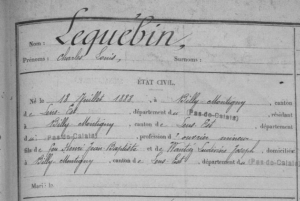 Nom : Lequébin,
Prénoms : Charles Louis.
ÉTAT CIVIL.
Né le 18 Juillet 1888, à Billy-Montigny, canton
de Lens Est, département d Pas-de-Calais, résidant
à Billy Montigny, canton de Lens Est, département
d Pas-de-Calais, profession d'ouvrier mineur
fils de Jean Baptiste et Joseph
Billy Montigny, canton de Lens Est, département d Pas-de-Calais
Marié le